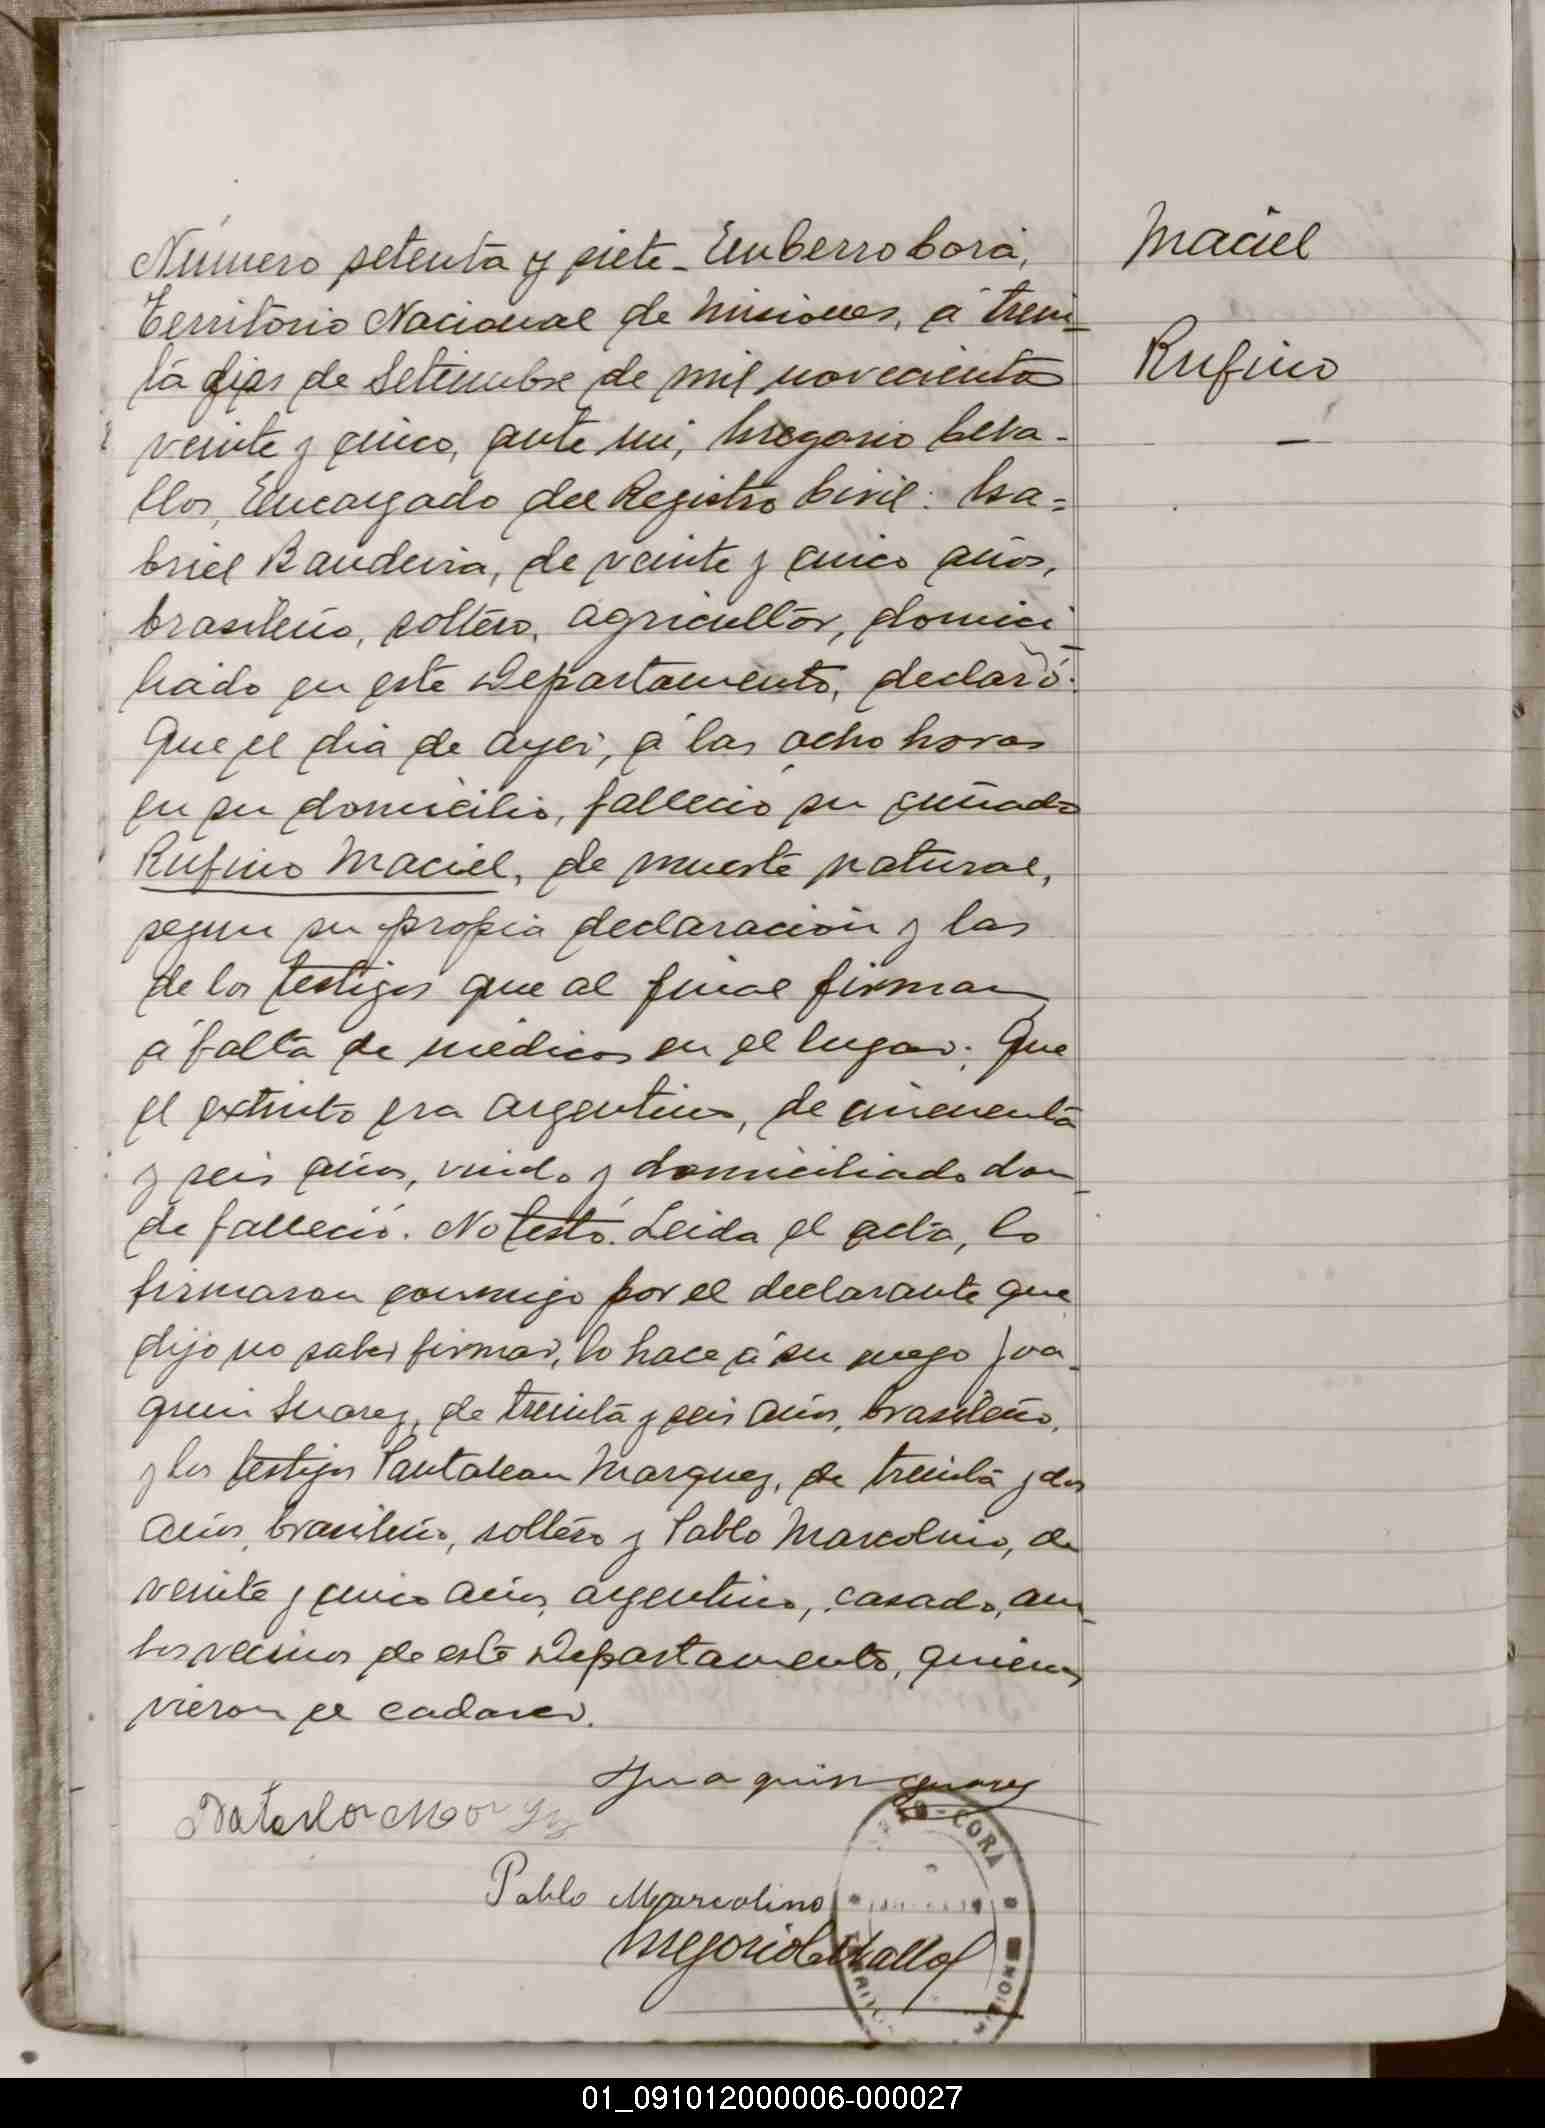 Número setenta y siete_ En Cerro Corá,
Maciel
Territorio Nacional de Misiones, á trein_
Rufino
ta dias de Setiembre de mil novecientos
veinte y cinco, ante mi, Gregorio Ceba-
llos, Encargado del Registro Civil: Ga=
briel Bandeira, de veinte y cinco años,
brasileño, soltero, agricultor, domici_
liado en este Departamento, declaró:
Que el dia de ayer, á las ocho horas
en su domicilio, falleció su cuñado
Rufino Maciel, de muerte natural,
segun su propia declaración y las
de los testigos que al final firman
á falta de médicos en el lugar; Que
el extinto era argentino, de cincuenta
y seis años, viudo y domiciliado don_
de falleció. No testó. Leida el acta, lo
firmaron conmigo por el declarante que
dijo no saber firmar, lo hace á su ruego Joa_
quin Suarez, de treinta y seis años, brasileño,
y los testigos Pantaleon Marquez, de treinta y dos
años, brasileño, soltero y Pablo Marcolino, de
veinte y cinco años, argentino, casado, am_
bos vecinos de este Departamento, quienes
vieron el cadaver.
Juaquin Suarez
Pablo Marcolino
Gregorio Ceballos
CORÁ
01_091012000006-000027